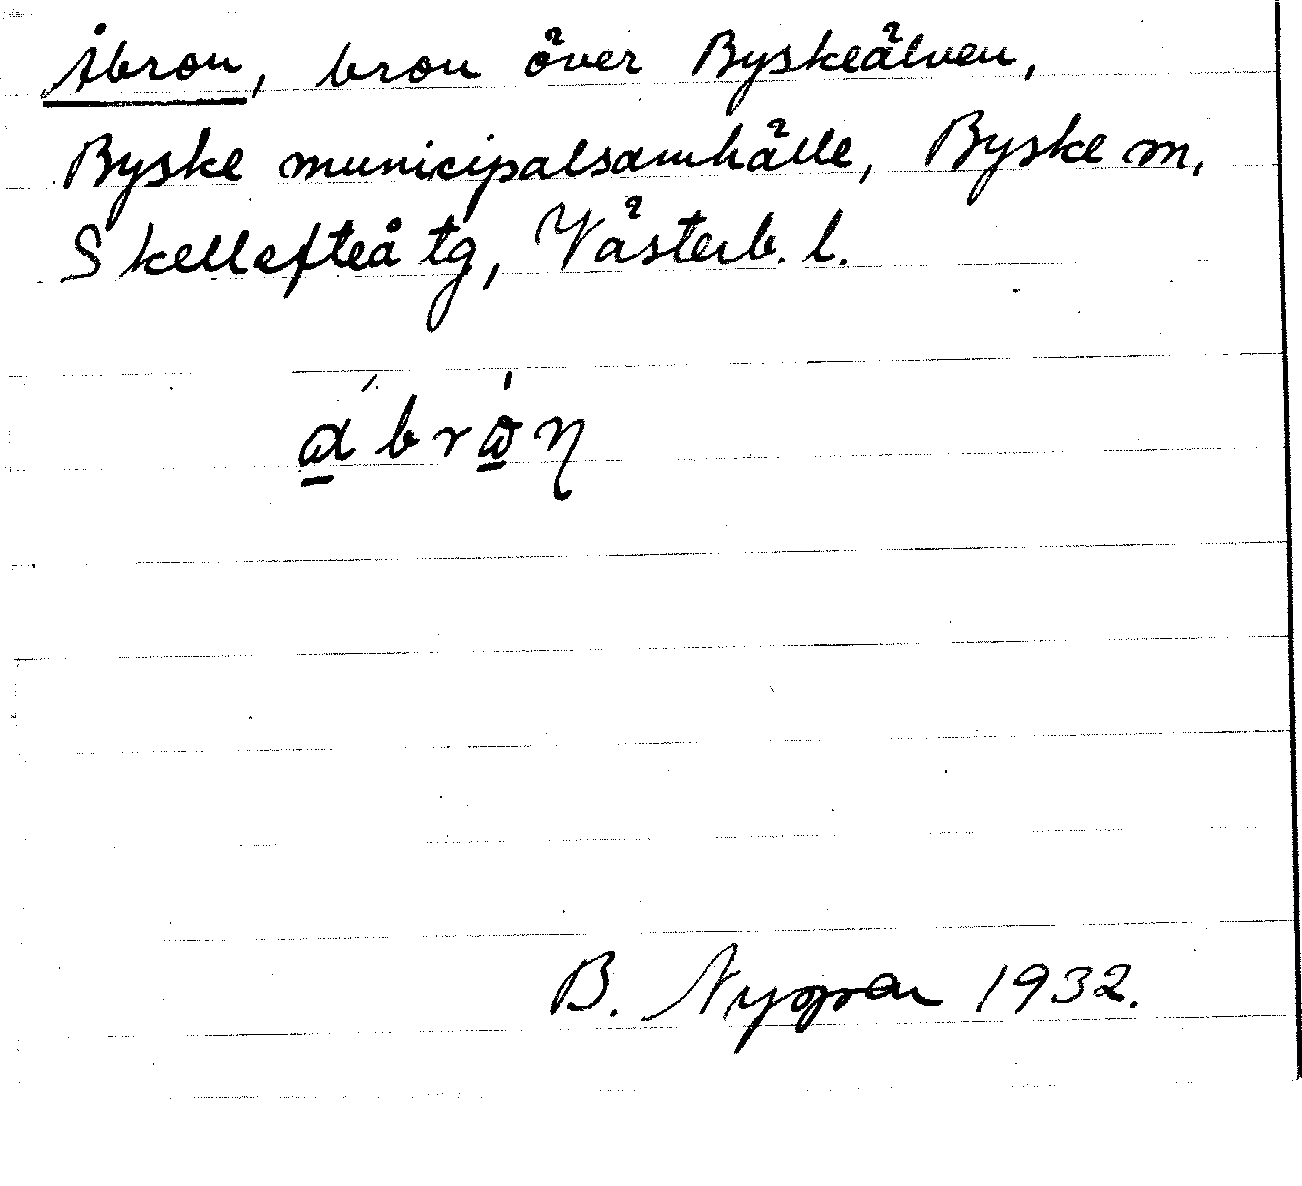 Åbron, bron över Byskeälven,
Byske municipalsamhälle, Byske m,
Skellefteå tg, Västerb. l.
B. 1932.